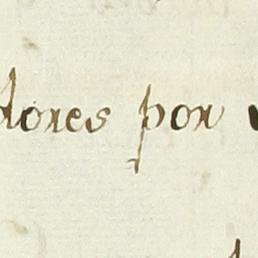 dores por